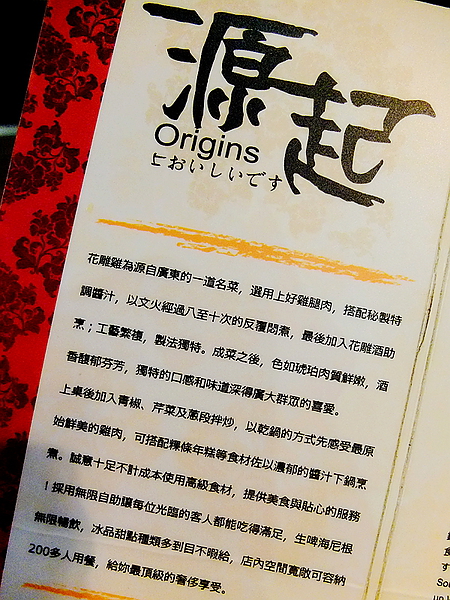 源起
Origins
とおいしいです
花雕雞為源自廣東的一道名菜，選用上好雞腿肉，搭配秘製特
調醬汁，以文火經過八至十次的反覆悶煮，最後加入花雕酒助
烹；工藝繁複，製法獨特。成菜之後，色如琥珀肉質鮮嫩，酒
香馥郁芬芳，獨特的口感和味道深得廣大群眾的喜愛。
上桌後加入青椒、芹菜及蔥段拌炒，以乾鍋的方式先感受最原
始鮮美的雞肉，可搭配粿條年糕等食材佐以濃郁的醬汁下鍋烹
煮。誠意十足不計成本使用高級食材，提供美食與貼心的服務
！採用無限自助讓每位光臨的客人都能吃得滿足，生啤海尼根
無限暢飲，冰品甜點種類多到目不暇給，店內空間寬敞可容納
200多人用餐，給妳最頂級的奢侈享受。